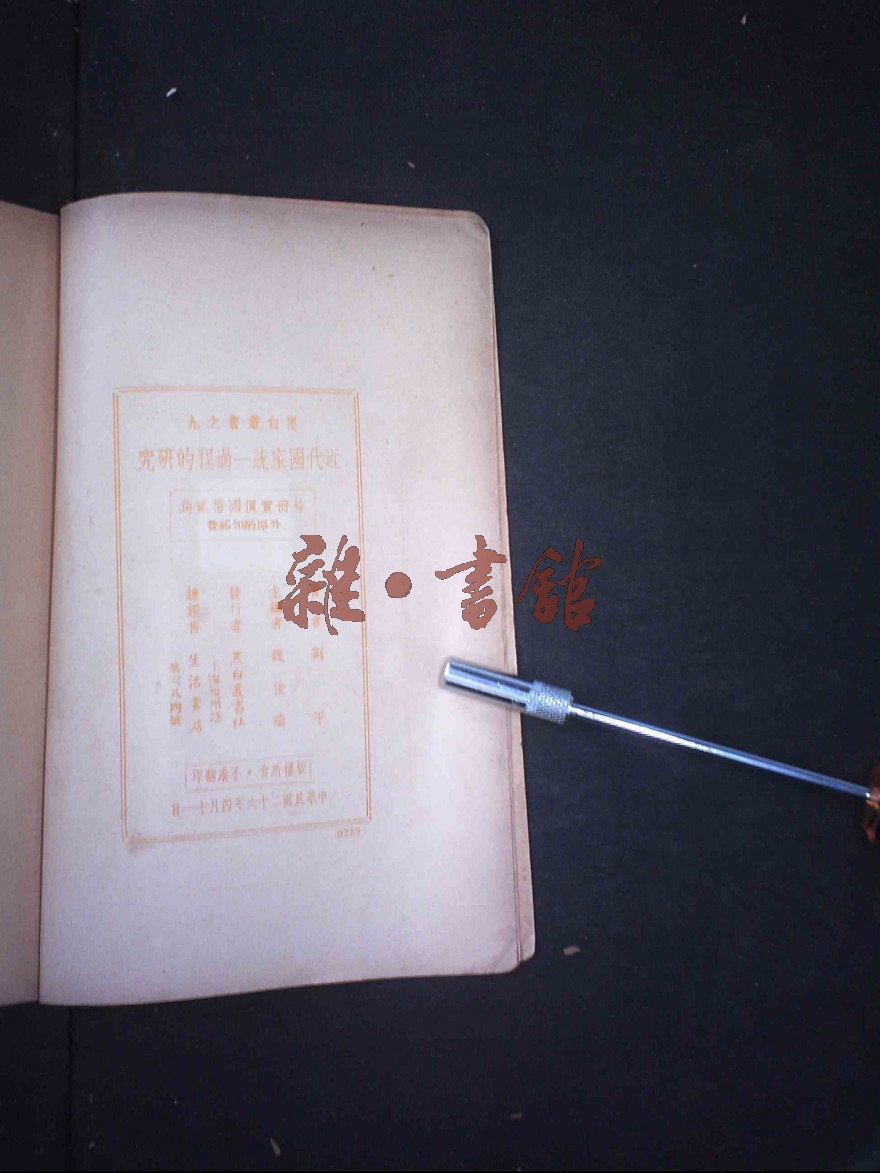 黑白叢書之九
近代國家統一過程的研究
每冊實價國幣貳角
外埠酌加郵費
著者 劉平
主編者 錢俊瑞
發行者 黑白叢書社
上海福州路
總經售 生活書店
第三八四號
版權所有·不准翻印
中華民國二十六年四月十一日
0289
雜·書館